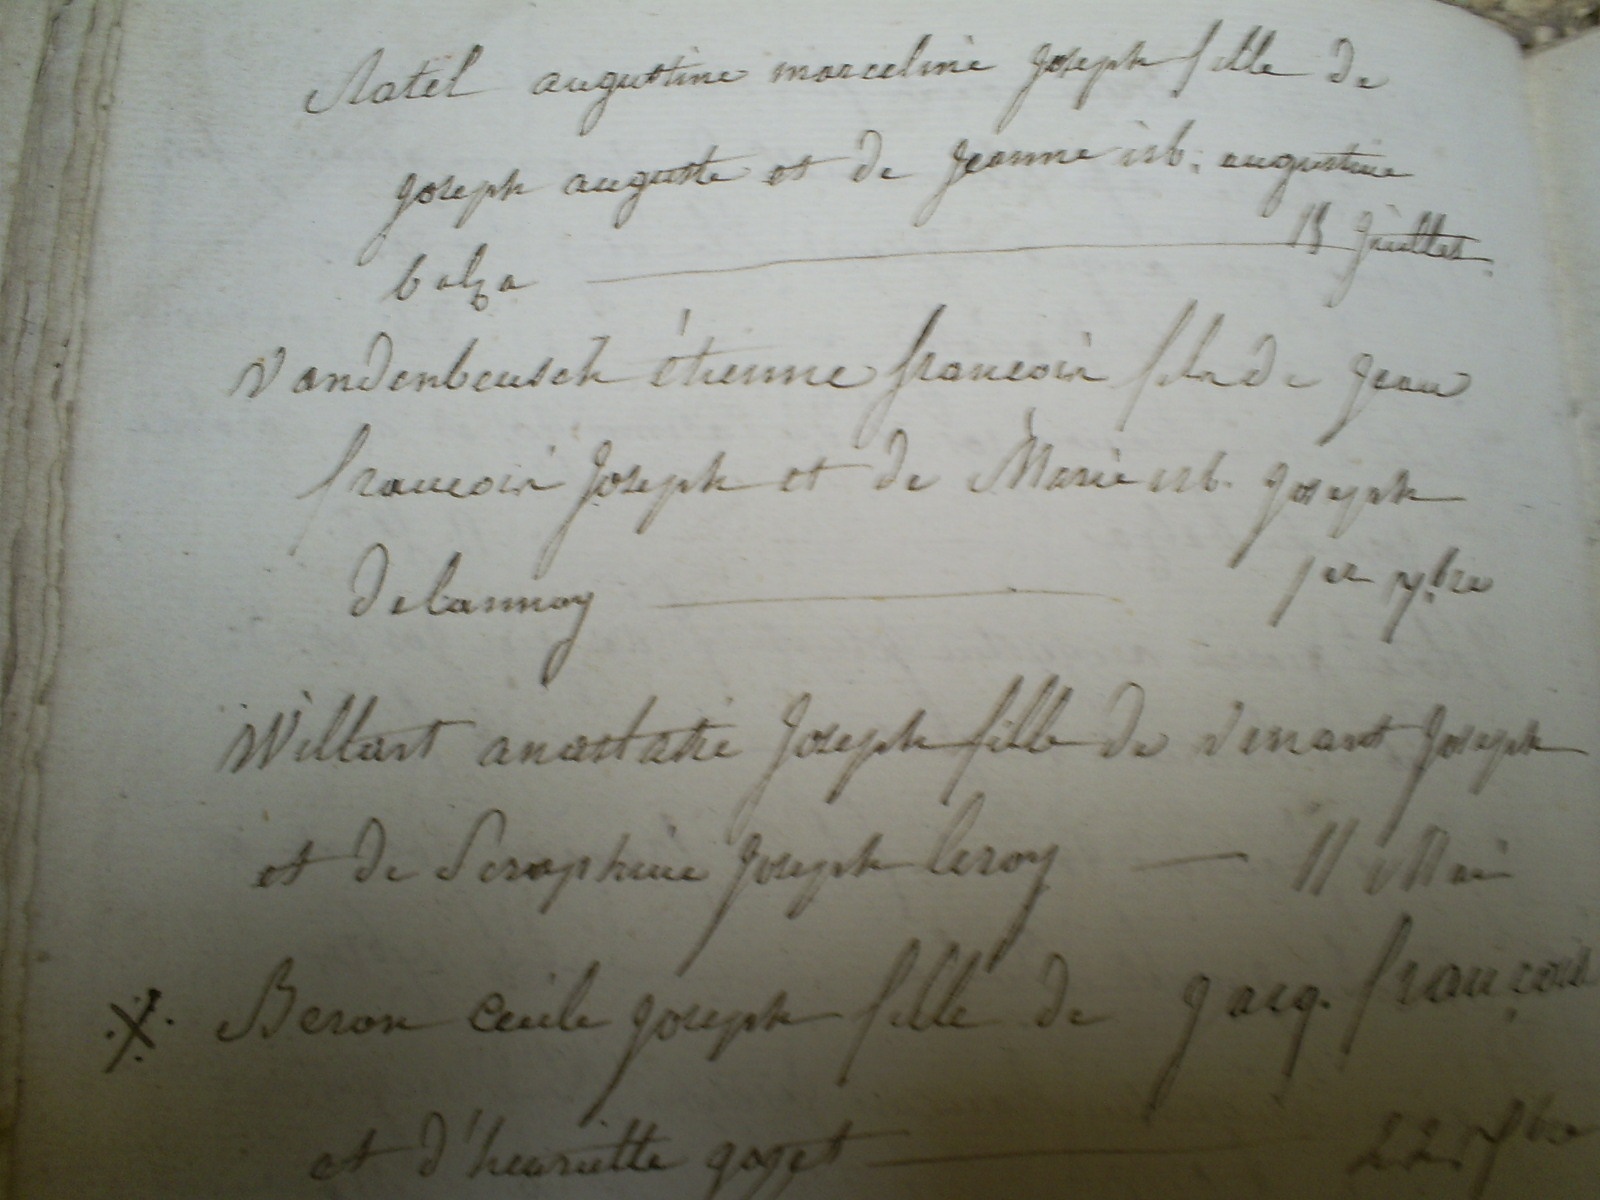 Ratel augustine marceline Joseph fille de
Joseph auguste et de Jeanne isb. augustine
balza 15 Juillet.
Vandenbeusch étienne francois fils de Jean
francois Joseph et de Marie isb. Joseph
Delannoy 1er 7bre
Willart anastasie Joseph fille de venant Joseph
et de Seraphine Joseph leroy 11 Mai
X Beron Cecile Joseph fille de Jacq. françois
et d'henriette goget 22 7bre